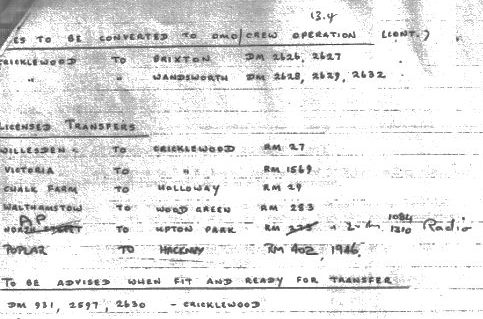 13.4
ES TO BE CONVERTED TO OMO/CREW OPERATION (CONT.)
CRICKLEWOOD TO BRIXTON DM 2626, 2627
" " WANDSWORTH DM 2628, 2629, 2632
LICENSED TRANSFERS
WILLESDEN TO CRICKLEWOOD RM 27
VICTORIA TO " " RM 1569
CHALK FARM TO HOLLOWAY RM 29
WALTHAMSTOW TO WOOD GREEN RM 283
AP
NORTH STREET TO UPTON PARK RM 1084 1310 Radio
POPLAR TO HACKNEY RM 402, 1946
TO BE ADVISED WHEN FIT AND READY FOR TRANSFER
DM 931, 2597, 2630 - CRICKLEWOOD